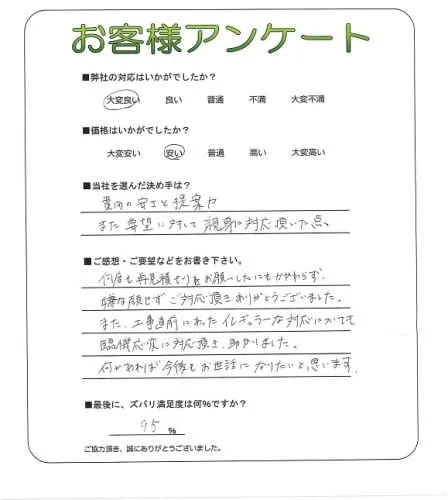 お客様アンケート
■弊社の対応はいかがでしたか?
大変良い 良い 普通 不満 大変不満
■価格はいかがでしたか?
大変安い 安い 普通 高い 大変高い
■当社を選んだ決め手は?
費用の安さと提案力
また要望に対して親身に対応頂いた点。
■ご感想・ご要望などをお書き下さい。
何度も再見積もりをお願いしたにもかかわらず、
嫌な顔せずご対応頂きありがとうございました。
また、工事直前にあったイレギュラーな対応についても
臨機応変に対応頂き、助かりました。
何かあれば今後もお世話になりたいと思います。
■最後に、ズバリ満足度は何%ですか?
95 %
ご協力頂き、誠にありがとうございました。